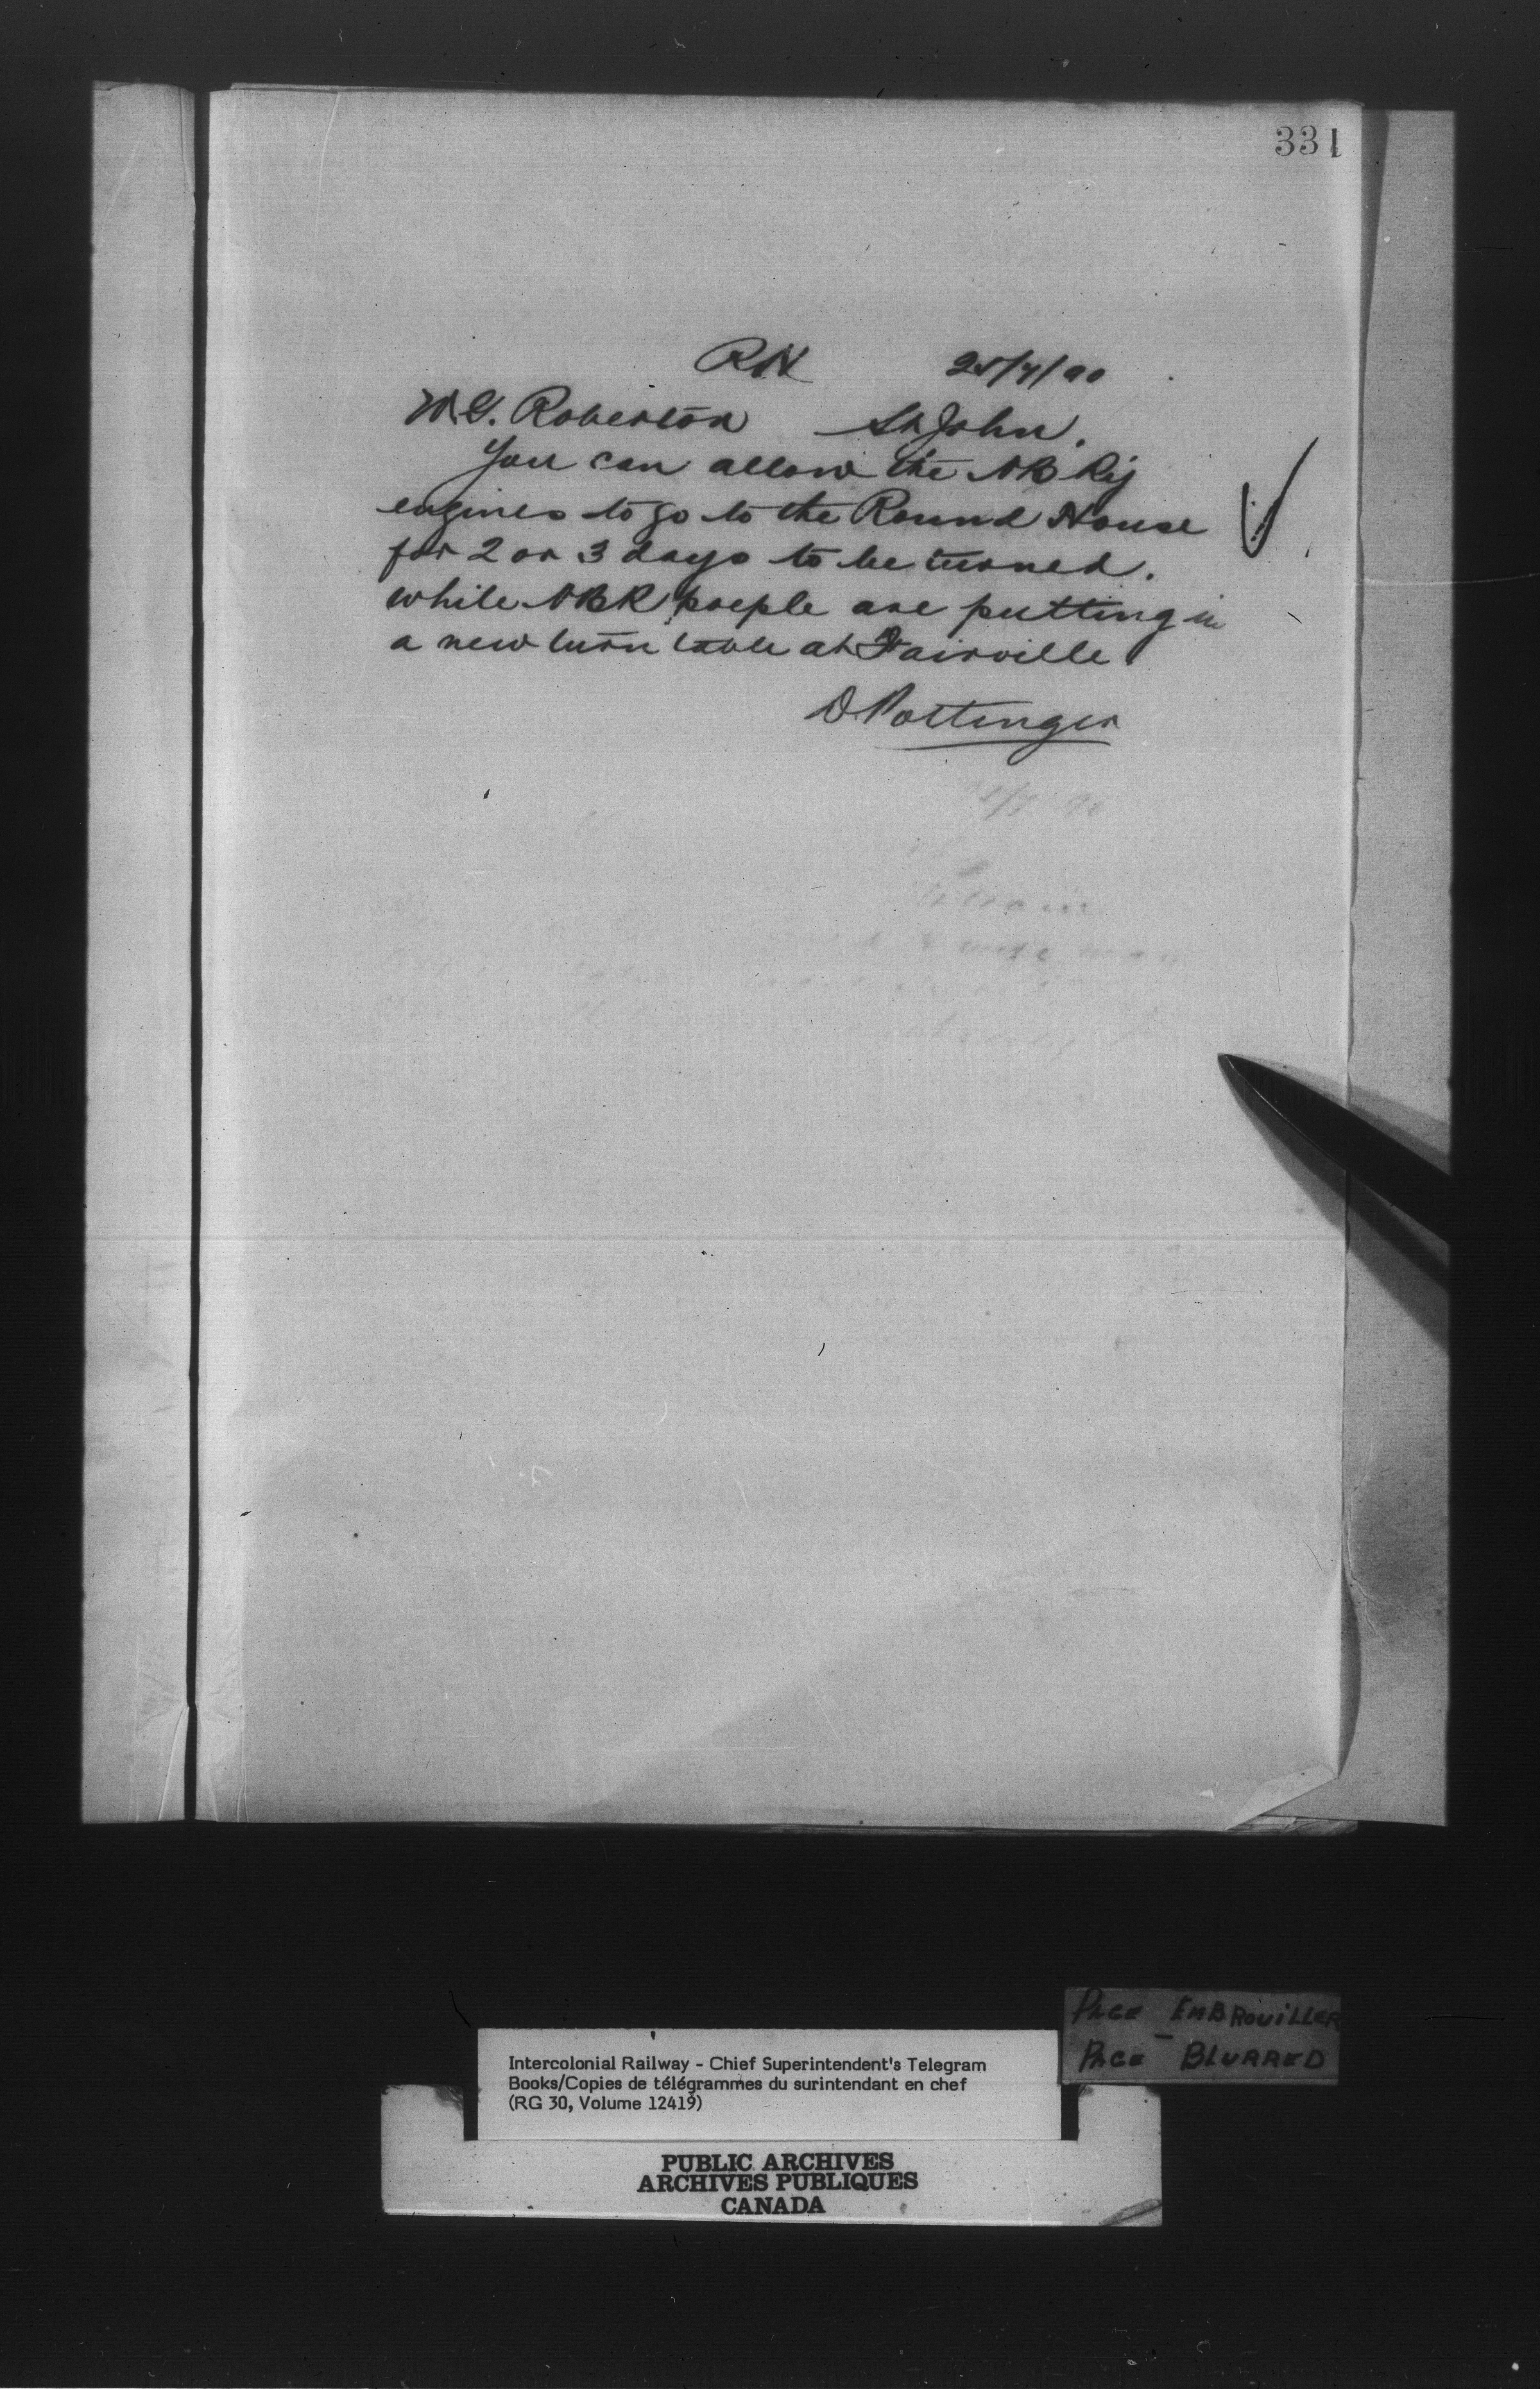 331
RN 25/7/90
W.G. Roberton St John.
You can allow the NB Ry
engines to go to the Round House
for 2 or 3 days to be turned.
while NBR people are putting in
a new turn table at Fairville
D Pottinger
Page Embrouiller
Page - Blurred
Intercolonial Railway - Chief Superintendent's Telegram
Books/Copies de télégrammes du surintendant en chef
(RG 30, Volume 12419)
PUBLIC ARCHIVES
ARCHIVES PUBLIQUES
CANADA